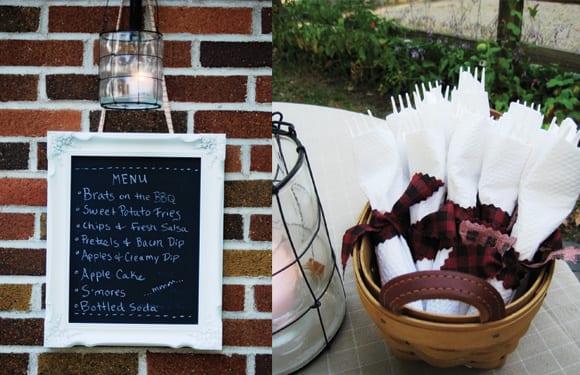 MENU
• Brats on the BBQ
• Sweet Potato Fries
• Chips & Fresh Salsa
• Pretzels & Bacon Dip
• Apples & Creamy Dip
• Apple Cake
• S'mores ...mmm...
• Bottled Soda